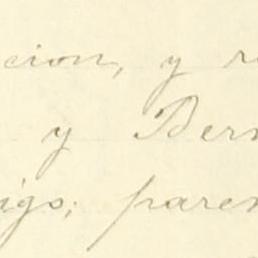 cion, y r
y Bern
igo; paren